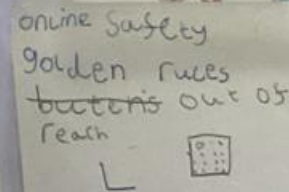 online Safety
golden rules
buttens out of
reach